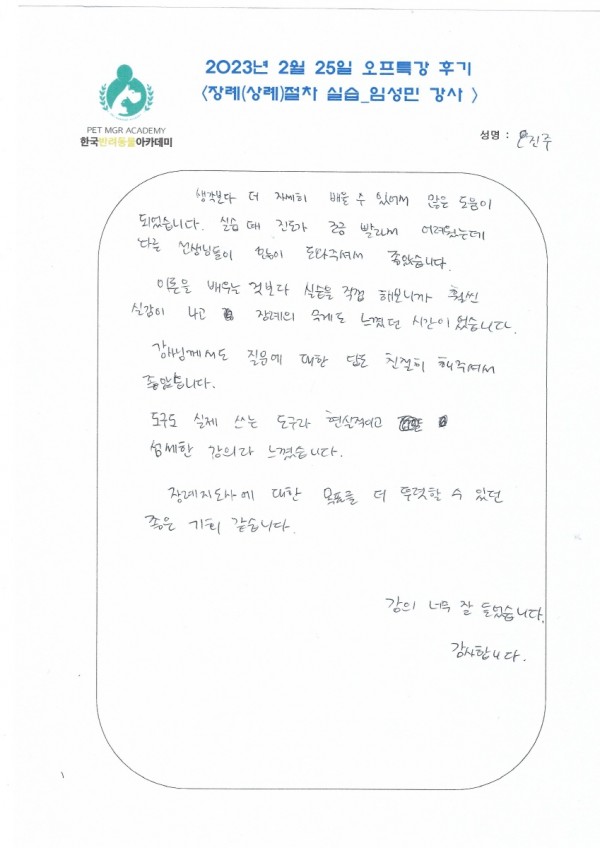 2023년 2월 25일 오프특강 후기
<장례(상례)절차 실습_임성민 강사 >
PET MGR ACADEMY
한국반려동물아카데미
성명 : 진주
생각보다 더 자세히 배울 수 있어서 많은 도움이
되었습니다. 실습 때 진도가 조금 빨라서 어려웠는데
다른 선생님들이 많이 도와주셔서 좋았습니다.
이론을 배우는 것보다 실습을 직접 해보니까 훨씬
실감이 나고 장례의 무게도 느꼈던 시간이었습니다.
강사님께서도 질문에 대한 답도 친절히 해주셔서
좋았습니다.
도구도 실제 쓰는 도구라 현실적이고
섬세한 강의라 느꼈습니다.
장례지도사에 대한 목표를 더 뚜렷할 수 있던
좋은 기회 같습니다.
강의 너무 잘 들었습니다.
감사합니다.